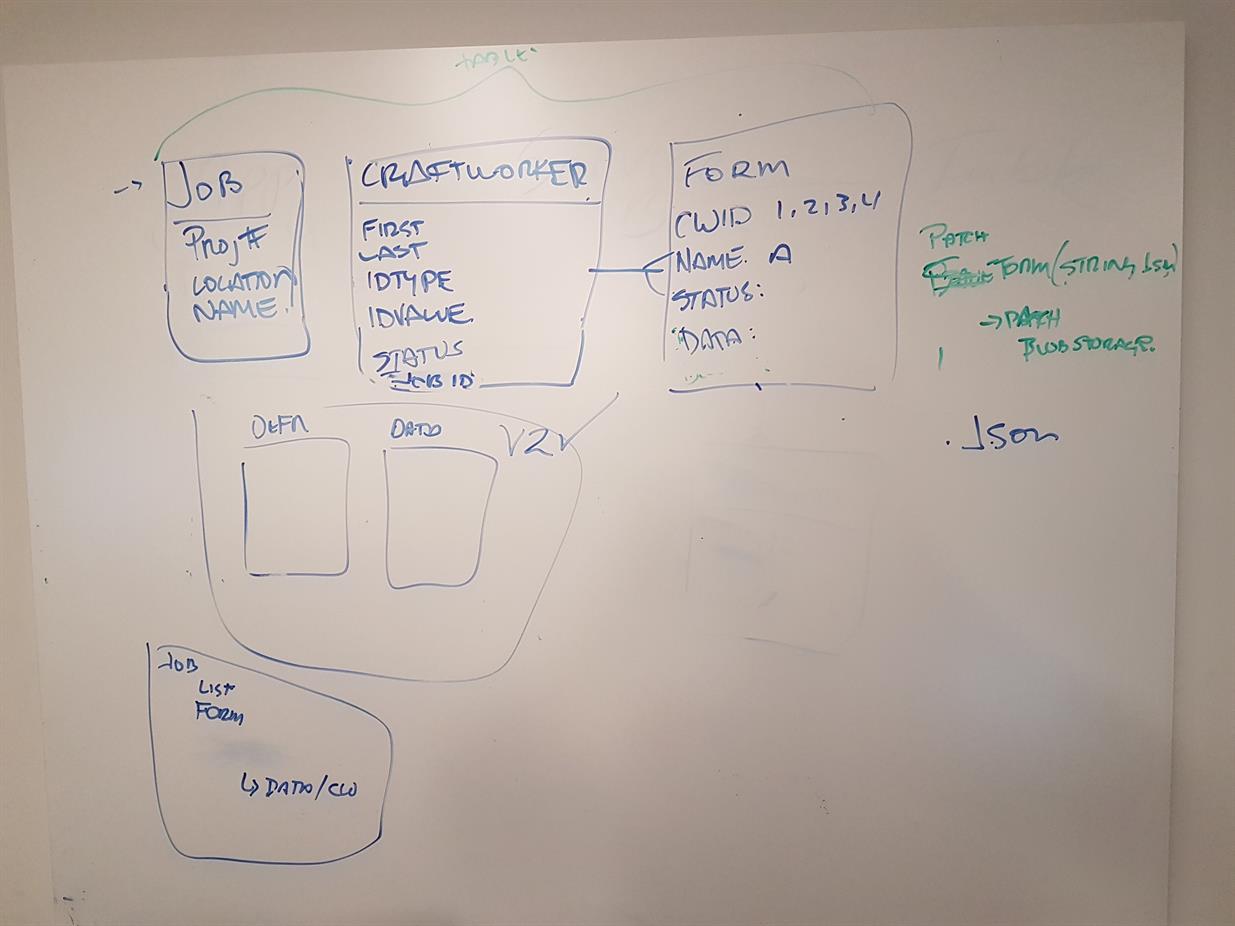 TABLE
JOB
PROJ#
LOCATION
NAME.
CRAFTWORKER
FIRST
LAST
IDTYPE
IDVALUE.
STATUS
JOB ID
FORM
CWID 1,2,3,4
NAME. A
STATUS:
DATA:
PATCH
FORM(STRING, JSON)
→ PATCH
BLOBSTORAGE.
.JSON
DEFN
DATA
V2
JOB
LIST
FORM
↳ DATA/CW